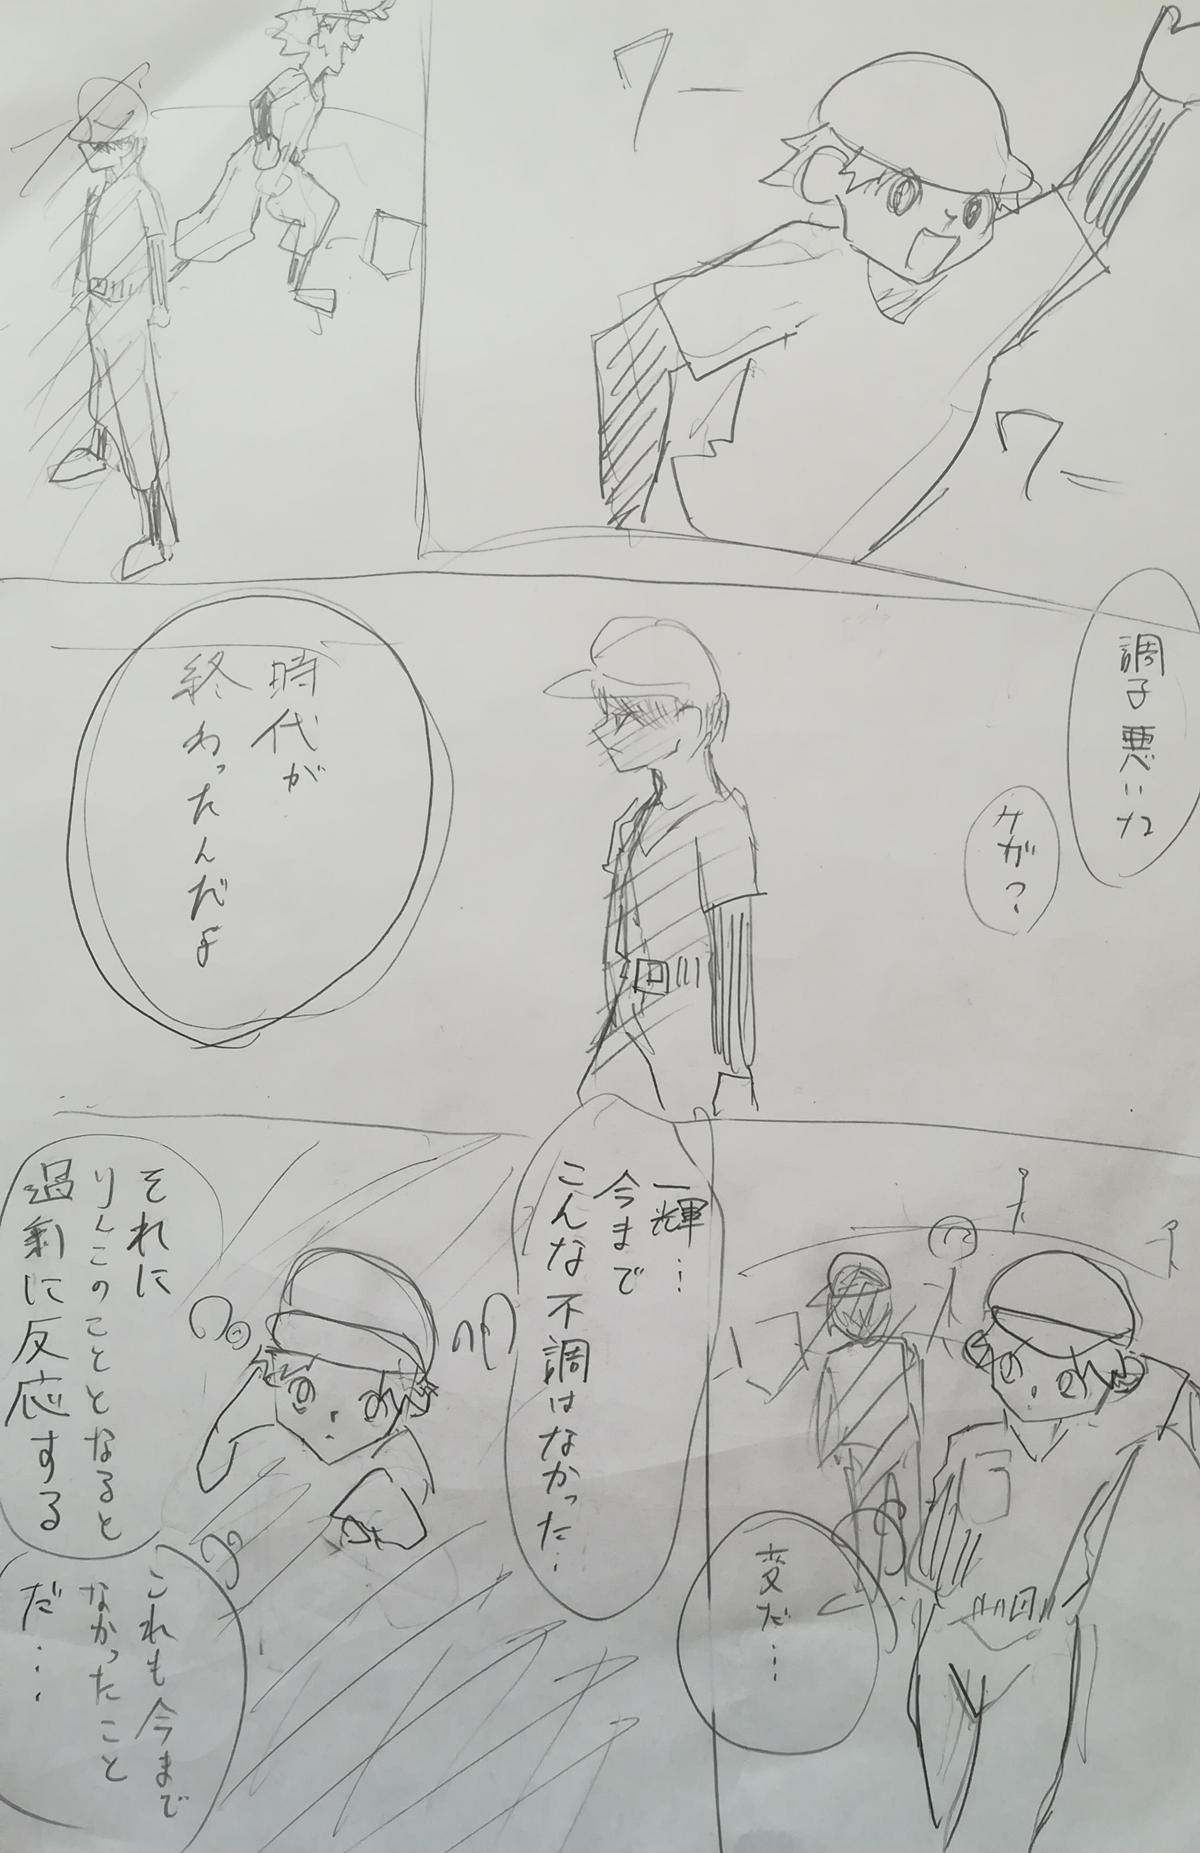 ワー
ワー
調子悪いな
ケガ?
時代が
終わったんだよ
変だ…
一輝…
今まで
こんな不調はなかった…
それに
りんこのこととなると
過剰に反応する
これも今まで
なかったこと
だ…